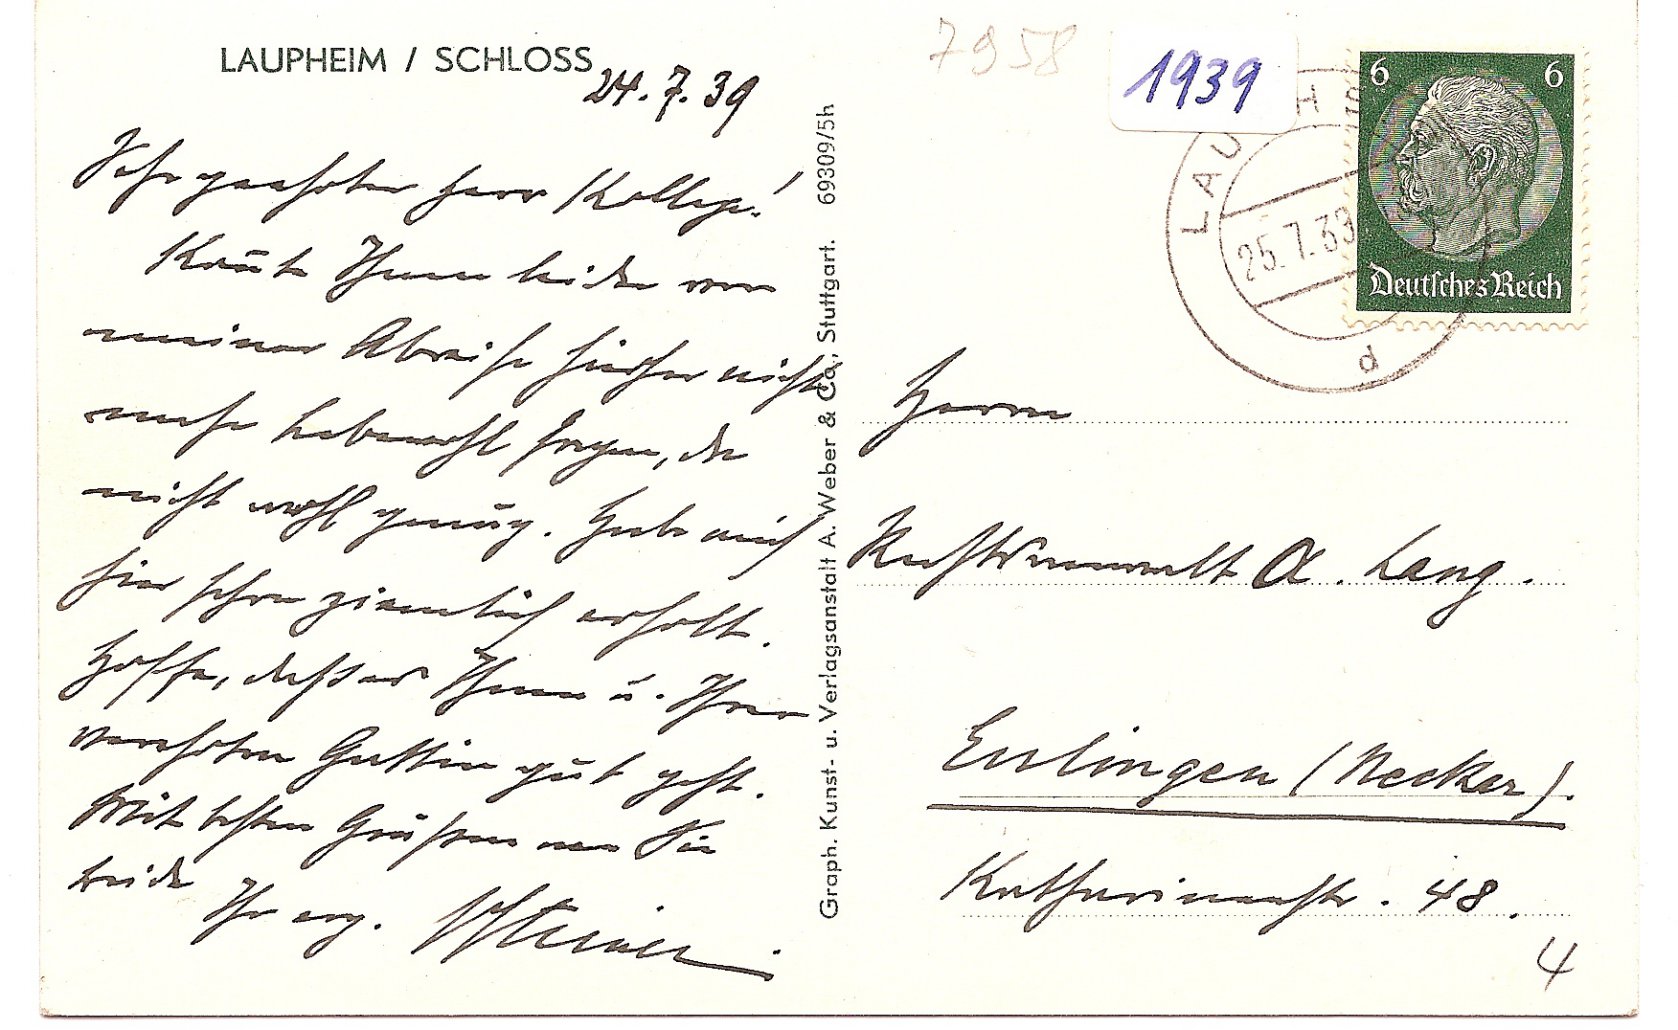 LAUPHEIM / SCHLOSS
24.7.39
Sehr geehrter Herr Kollege!
Konnte Ihnen leider vor
meiner Abreise hierher nicht
mehr Lebewohl sagen, da
nicht wohl genug. Habe mich
hier schon ziemlich erholt.
Hoffe, daß es Ihnen u. Ihrer
verehrten Gattin gut geht.
Mit besten Grüßen an Sie
beide
Ihr erg. Steiner
Graph. Kunst- u. Verlagsanstalt A. Weber & Co., Stuttgart. 69309/5h
7958
1939
6 6
Deutsches Reich
LAU H
25.7.39
d
Herrn
Rechtsanwalt A. Lang.
Esslingen (Neckar).
Katharinenstr. 48.
4